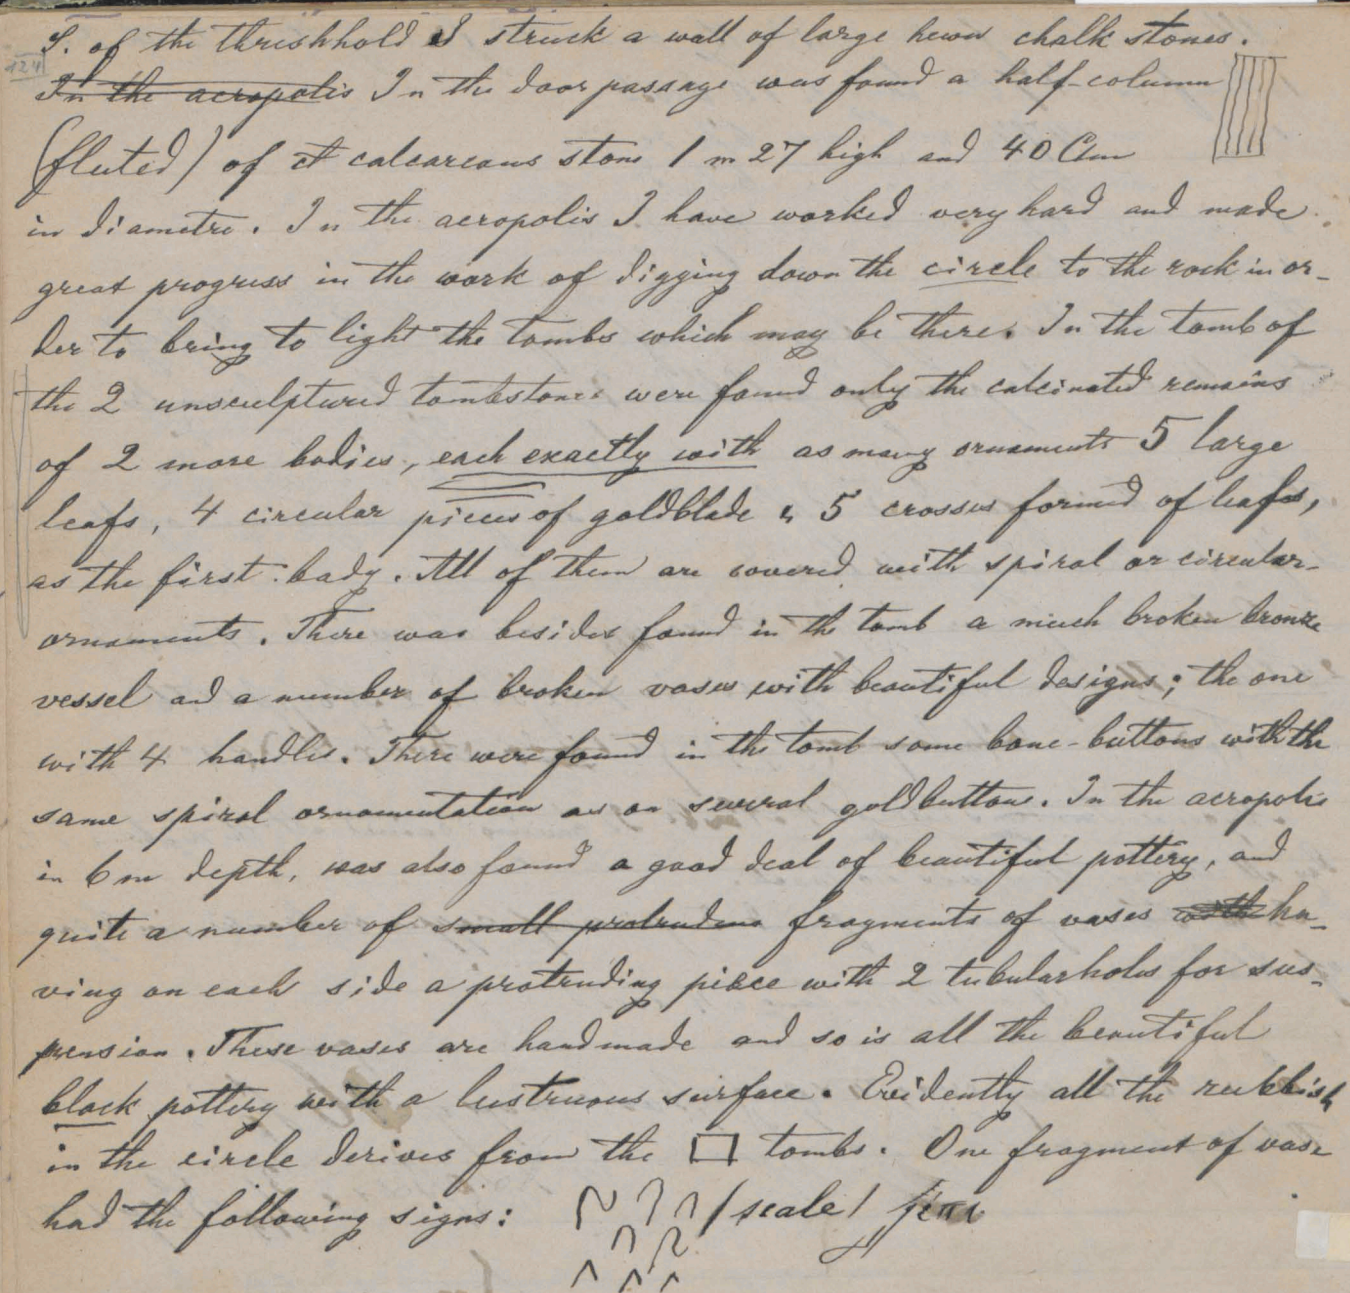 S. of the threshhold I struck a wall of large hewn chalk stones.
124
In the acropolis In the doorpassage was found a half-column
(fluted) of calcareous stone 1 m 27 high and 40 Ctm
in diametre. In the acropolis I have worked very hard and made
great progress in the work of digging down the circle to the rock in or-
der to bring to light the tombs which may be there. In the tomb of
the 2 unsculptured tombstones were found only the calcinated remains
of 2 more bodies, each exactly with as many ornaments 5 large
leafs, 4 circular pieces of goldblade & 5 crosses formed of leafs,
as the first body. All of them are covered with spiral or circular-
ornaments. There was besides found in the tomb a much broken bronze
vessel ad a number of broken vases with beautiful designs; the one
with 4 handles. There were found in the tomb some bone-buttons with the
same spiral ornamentation as on several goldbuttons. In the acropolis
in 6 m depth, was also found a good deal of beautiful pottery, and
quite a number of small protrudens fragments of vases with ha-
ving on each side a protruding piece with 2 tubularholes for sus-
pension. These vases are handmade and so is all the beautiful
black pottery with a lustruous surface. Evidently all the rubbish
in the circle derives from the □ tombs. One fragment of vase
had the following signs: /scale/